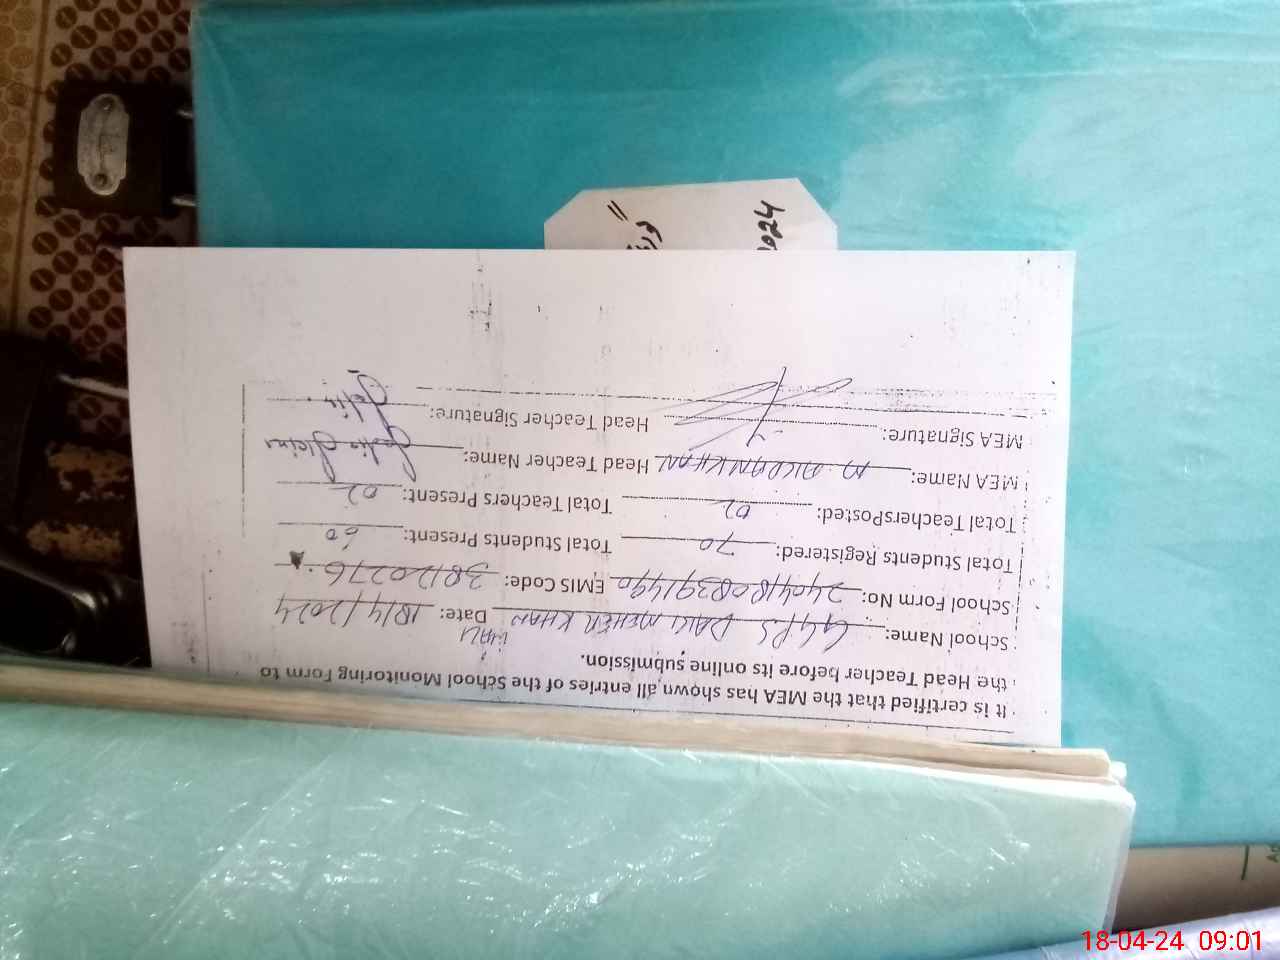 It is certified that the MEA has shown all entries of the School Monitoring Form to
the Head Teacher before its online submission.
WALI
School Name: GGPS DAKU MEHER KHAN Date: 18/4/2024
School Form No: 240418083911490 EMIS Code: 38120276
Total Students Registered: 70 Total Students Present: 60
Total TeachersPosted: 02 Total Teachers Present: 02
MEA Name: M. AKRAM KHAN Head Teacher Name: Sadia
MEA Signature: Head Teacher Signature: Sadia
2024
18-04-24 09:01